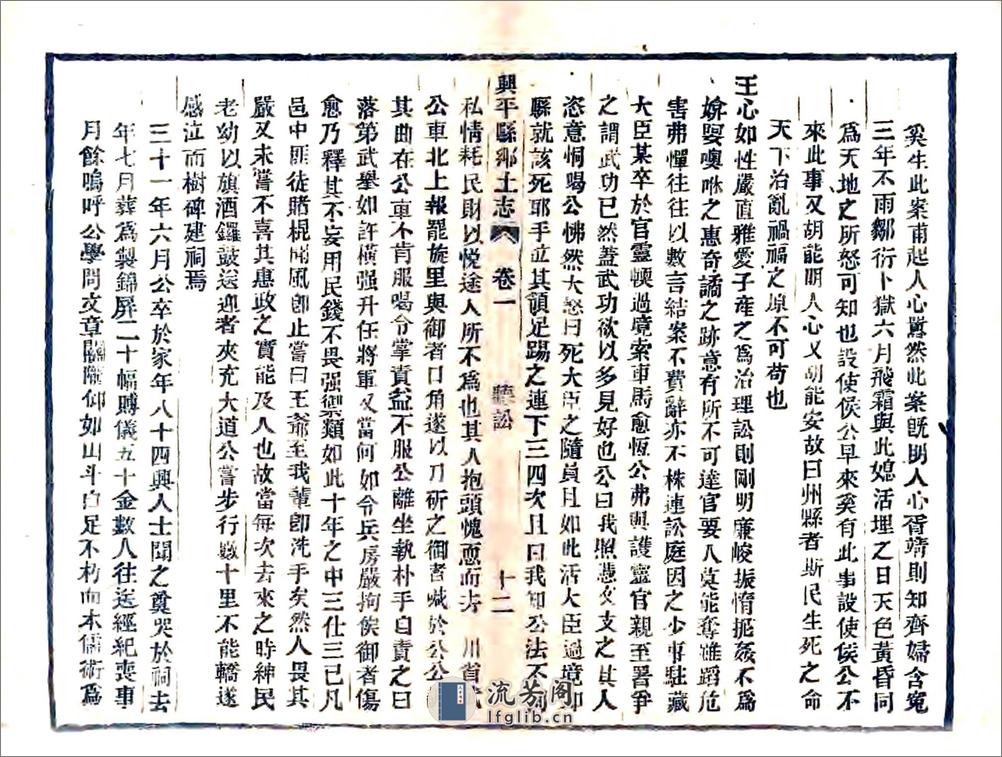 奚生此案甫起人心囂然此案既明人心胥靖則知齊婦含冤
三年不雨鄒衍卜獄六月飛霜與此媳活埋之日天色黃昏同
為天地之所怒可知也設使侯公早來奚有此事設使侯公不
來此事又胡能明人心又胡能安故曰州縣者斯民生死之命
天下治亂禍福之原不可苟也
王心如性嚴直雅愛子產之為治理訟則剛明廉峻振惰扼姦不為
媕娿噢咻之惠奇譎之跡意有所不可達官要人莫能奪雖蹈危
害弗憚往往以數言結案不費辭亦不株連訟庭因之少事駐藏
大臣某卒於官靈輀過境索車馬愈恆公弗與護靈官親至署爭
之謂武功已然蓋武功欲以多見好也公曰我照憑文支之其人
恣意恫喝公怫然大怒曰死大臣之隨員且如此活大臣過境卽
縣就該死耶手立其領足踢之連下三四次且曰我知公法不
私情耗民財以悅途人所不為也其人抱頭愧恧而去 川首
公車北上報罷旋里與御者口角遂以刀斫之御者喊於公公
其曲在公車不肯服喝令掌責益不服公離坐執朴手自責之曰
落第武舉如許橫强升任將軍又當何如令兵房嚴拘候御者傷
愈乃釋其不妄用民錢不畏强禦類如此十年之中三仕三已凡
邑中匪徒賭棍聞風卽止嘗曰王爺至我輩卽洗手矣然人畏其
嚴又未嘗不喜其惠政之實能及人也故當每次去來之時紳民
老幼以旗酒鑼鼓送迎者夾充大道公嘗步行數十里不能轎遂
感泣而樹碑建祠焉
三十一年六月公卒於家年八十四興人士聞之奠哭於祠去
年七月葬為製錦屏二十幅賻儀五十金數人往送經紀喪事
月餘嗚呼公學問文章關隴仰如山斗自足不朽而木儒術為
興平縣鄉土志
卷一
聽訟
十二
流芳阁
lfglib.cn